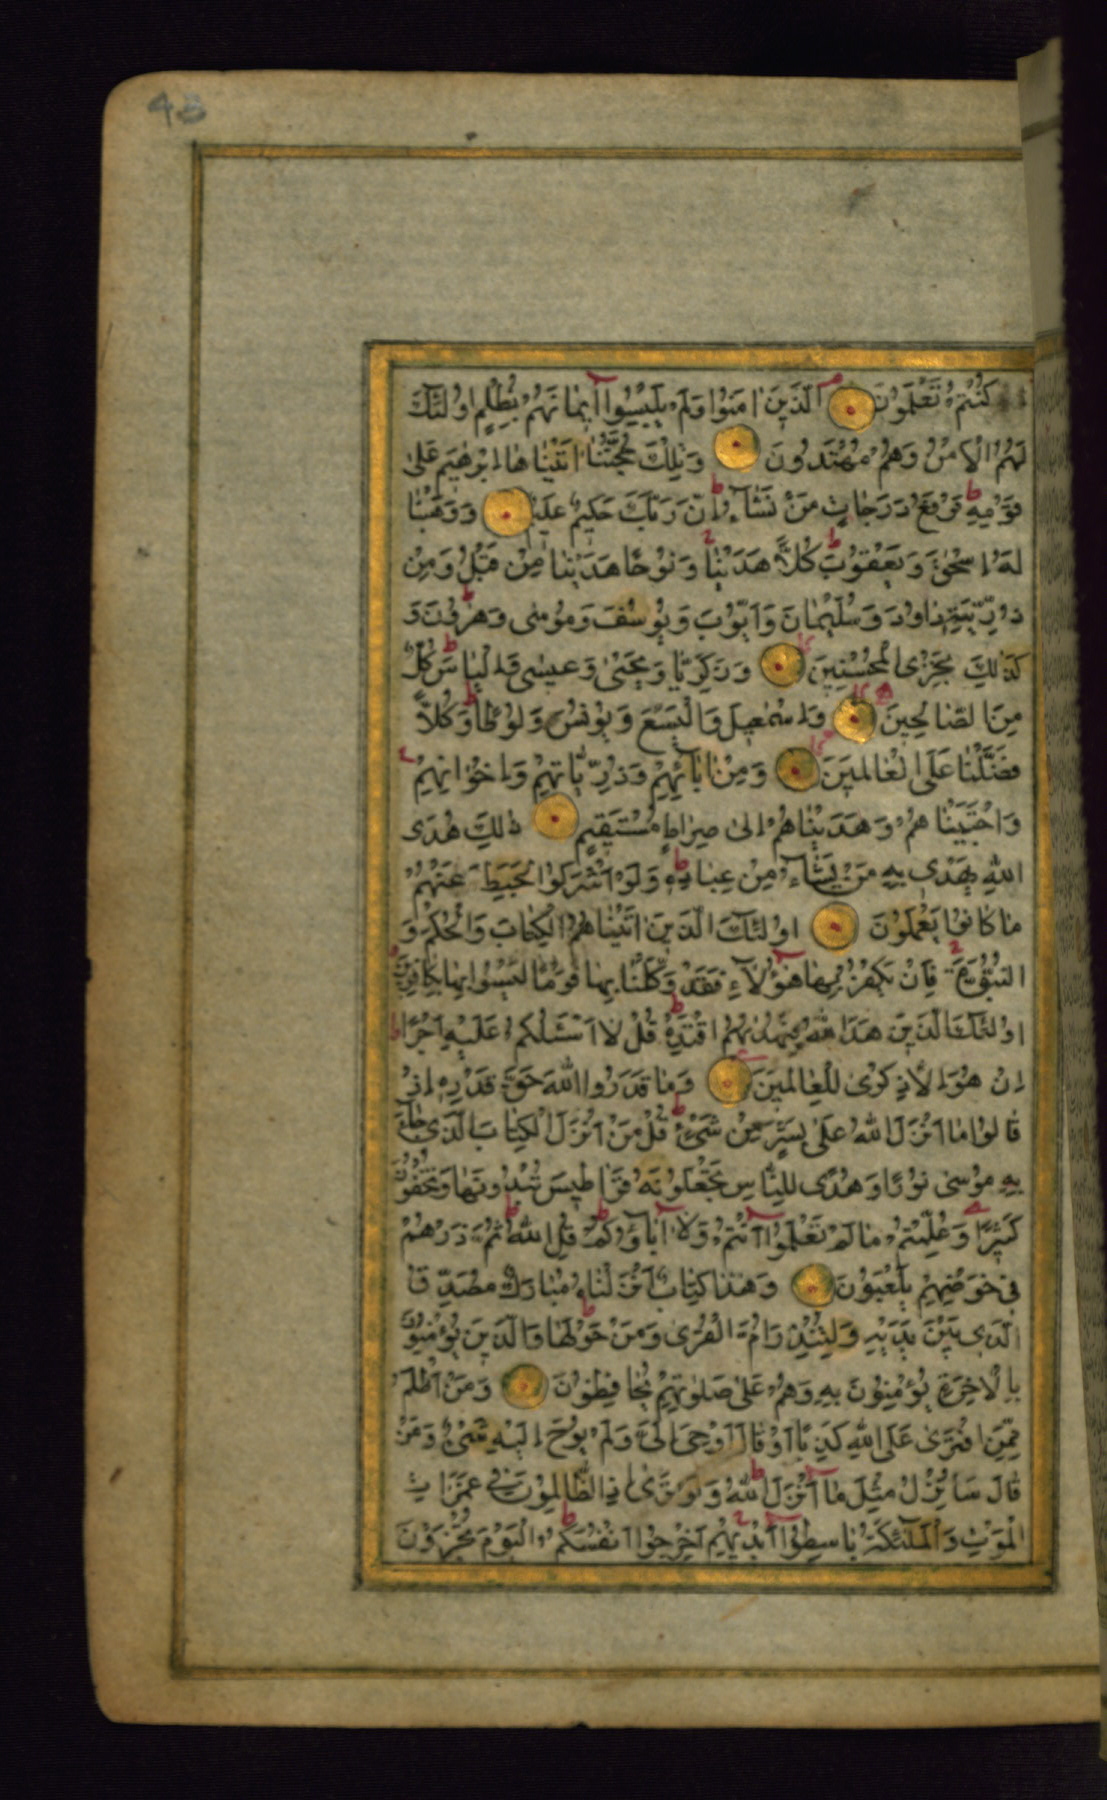 43
كُنْتُمْ تَعْلَمُونَ الَّذِينَ اٰمَنُوا وَلَمْ يَلْبِسُوا اٖيمَانَهُمْ بِظُلْمٍ اُولٰئِكَ
لَهُمُ الْاَمْنُ وَهُمْ مُهْتَدُونَ وَتِلْكَ حُجَّتُنَا اٰتَيْنَاهَا اِبْرٰهِيمَ عَلٰى
قَوْمِهِ نَرْفَعُ دَرَجَاتٍ مَنْ نَشَاءُ اِنَّ رَبَّكَ حَكِيمٌ عَلِيمٌ وَوَهَبْنَا
لَهُ اِسْحٰقَ وَيَعْقُوبَ كُلًّا هَدَيْنَا وَنُوحًا هَدَيْنَا مِنْ قَبْلُ وَمِنْ
ذُرِّيَّتِهِ دَاوُدَ وَسُلَيْمَانَ وَاَيُّوبَ وَيُوسُفَ وَمُوسٰى وَهٰرُونَ وَ
كَذٰلِكَ نَجْزِى الْمُحْسِنِينَ وَزَكَرِيَّا وَيَحْيٰى وَعِيسٰى وَاِلْيَاسَ كُلٌّ
مِنَ الصَّالِحِينَ وَاِسْمٰعِيلَ وَالْيَسَعَ وَيُونُسَ وَلُوطًا وَكُلًّا
فَضَّلْنَا عَلَى الْعَالَمِينَ وَمِنْ اٰبَائِهِمْ وَذُرِّيَّاتِهِمْ وَاِخْوَانِهِمْ
وَاجْتَبَيْنَاهُمْ وَهَدَيْنَاهُمْ اِلٰى صِرَاطٍ مُسْتَقِيمٍ ذٰلِكَ هُدَى
اللّٰهِ يَهْدِى بِهِ مَنْ يَشَاءُ مِنْ عِبَادِهِ وَلَوْ اَشْرَكُوا لَحَبِطَ عَنْهُمْ
مَا كَانُوا يَعْمَلُونَ اُولٰئِكَ الَّذِينَ اٰتَيْنَاهُمُ الْكِتَابَ وَالْحُكْمَ وَ
النُّبُوَّةَ فَاِنْ يَكْفُرْ بِهَا هٰؤُلَاءِ فَقَدْ وَكَّلْنَا بِهَا قَوْمًا لَيْسُوا بِهَا بِكَافِرِينَ
اُولٰئِكَ الَّذِينَ هَدَى اللّٰهُ فَبِهُدٰيهُمُ اقْتَدِهْ قُلْ لَا اَسْـَٔلُكُمْ عَلَيْهِ اَجْرًا
اِنْ هُوَ اِلَّا ذِكْرٰى لِلْعَالَمِينَ وَمَا قَدَرُوا اللّٰهَ حَقَّ قَدْرِهِ اِذْ
قَالُوا مَا اَنْزَلَ اللّٰهُ عَلٰى بَشَرٍ مِنْ شَىْءٍ قُلْ مَنْ اَنْزَلَ الْكِتَابَ الَّذِى جَاءَ
بِهِ مُوسٰى نُورًا وَهُدًى لِلنَّاسِ تَجْعَلُونَهُ قَرَاطِيسَ تُبْدُونَهَا وَتُخْفُونَ
كَثِيرًا وَعُلِّمْتُمْ مَا لَمْ تَعْلَمُوا اَنْتُمْ وَلَا اٰبَاؤُكُمْ قُلِ اللّٰهُ ثُمَّ ذَرْهُمْ
فِى خَوْضِهِمْ يَلْعَبُونَ وَهٰذَا كِتَابٌ اَنْزَلْنَاهُ مُبَارَكٌ مُصَدِّقُ
الَّذِى بَيْنَ يَدَيْهِ وَلِتُنْذِرَ اُمَّ الْقُرٰى وَمَنْ حَوْلَهَا وَالَّذِينَ يُؤْمِنُونَ
بِالْاٰخِرَةِ يُؤْمِنُونَ بِهِ وَهُمْ عَلٰى صَلٰوتِهِمْ يُحَافِظُونَ وَمَنْ اَظْلَمُ
مِمَّنِ افْتَرٰى عَلَى اللّٰهِ كَذِبًا اَوْ قَالَ اُوحِىَ اِلَىَّ وَلَمْ يُوحَ اِلَيْهِ شَىْءٌ وَمَنْ
قَالَ سَاُنْزِلُ مِثْلَ مَا اَنْزَلَ اللّٰهُ وَلَوْ تَرٰى اِذِ الظَّالِمُونَ فِى غَمَرَاتِ
الْمَوْتِ وَالْمَلٰئِكَةُ بَاسِطُوا اَيْدِيهِمْ اَخْرِجُوا اَنْفُسَكُمُ الْيَوْمَ تُجْزَوْنَ